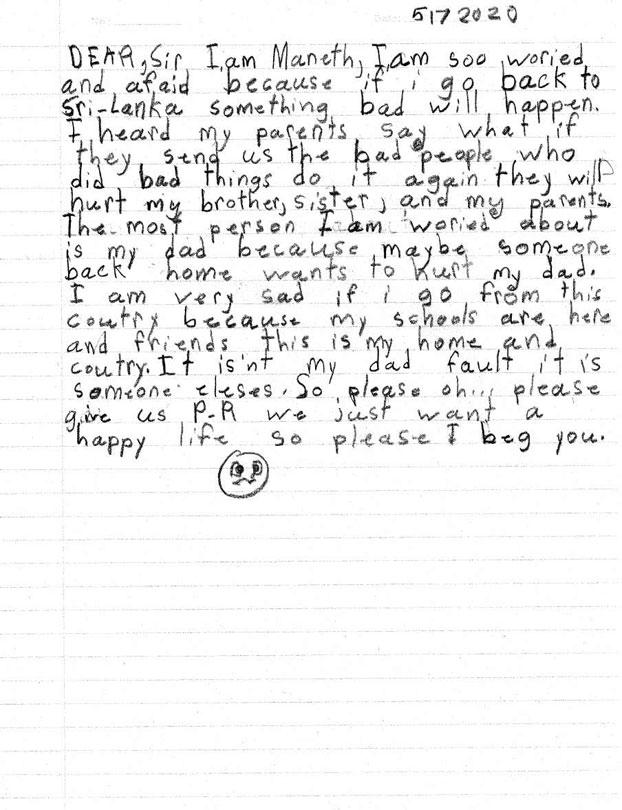 517 2020
DEAR, Sir I,am Maneth, I,am soo woried
and afaid because if i go back to
Sri-Lanka something bad will happen.
I heard my parents say what if
they send us the bad people who
did bad things do it again they will
hurt my brother, sister, and my parents.
The most person I am woried about
is my dad because maybe someone
back home wants to hurt my dad.
I am very sad if i go from this
coutry because my schools are here
and friends this is my home and
coutry. It is'nt my dad fault it is
someone eleses. So please oh... please
give us P-R we just want a
happy life so please I beg you.